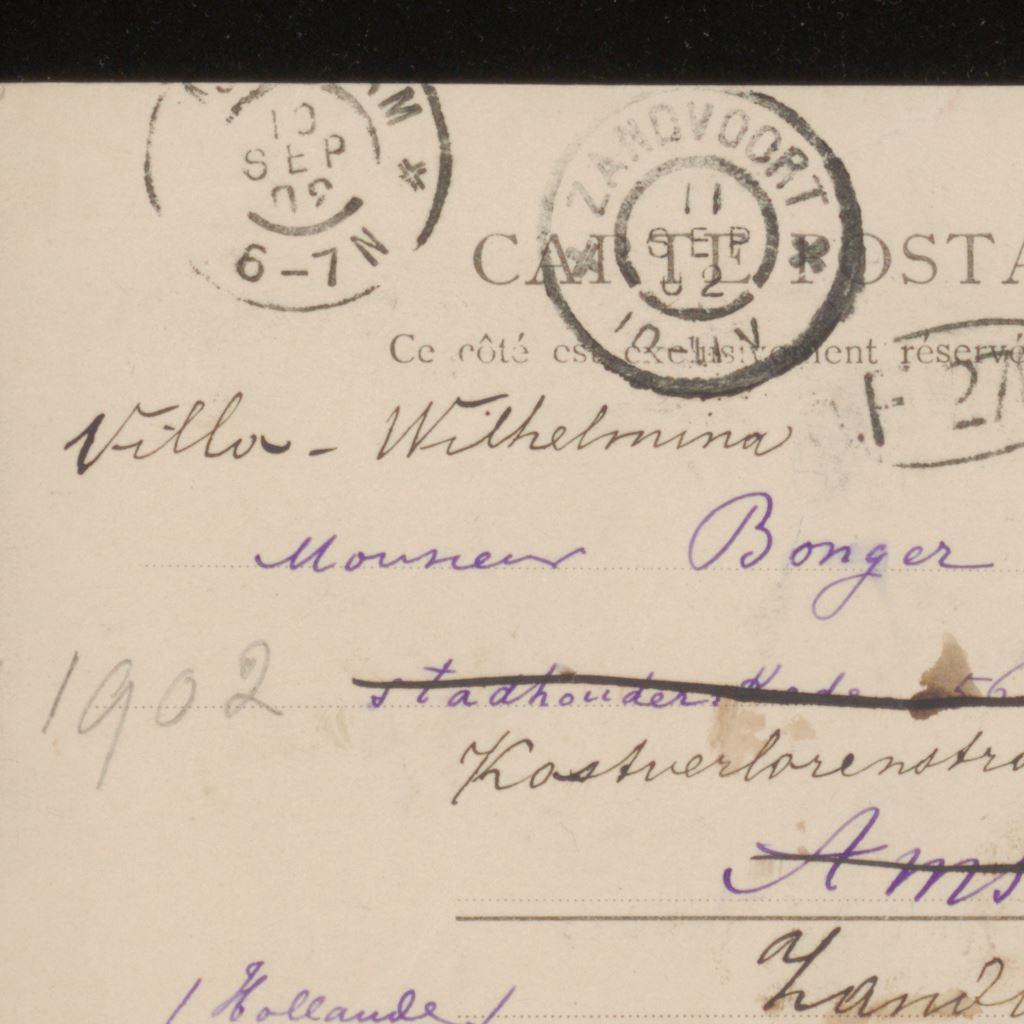 10
SEP
02
6-7N
ZANDVOORT
11
SEP
02
10-11V
CARTE POSTA
Ce côté est exclusivement réservé
F 27
Villa - Wilhelmina
Monsieur Bonger
1902
stadhouderskade 56
Kostverlorenstra
Ams
Zandv
(Hollande)